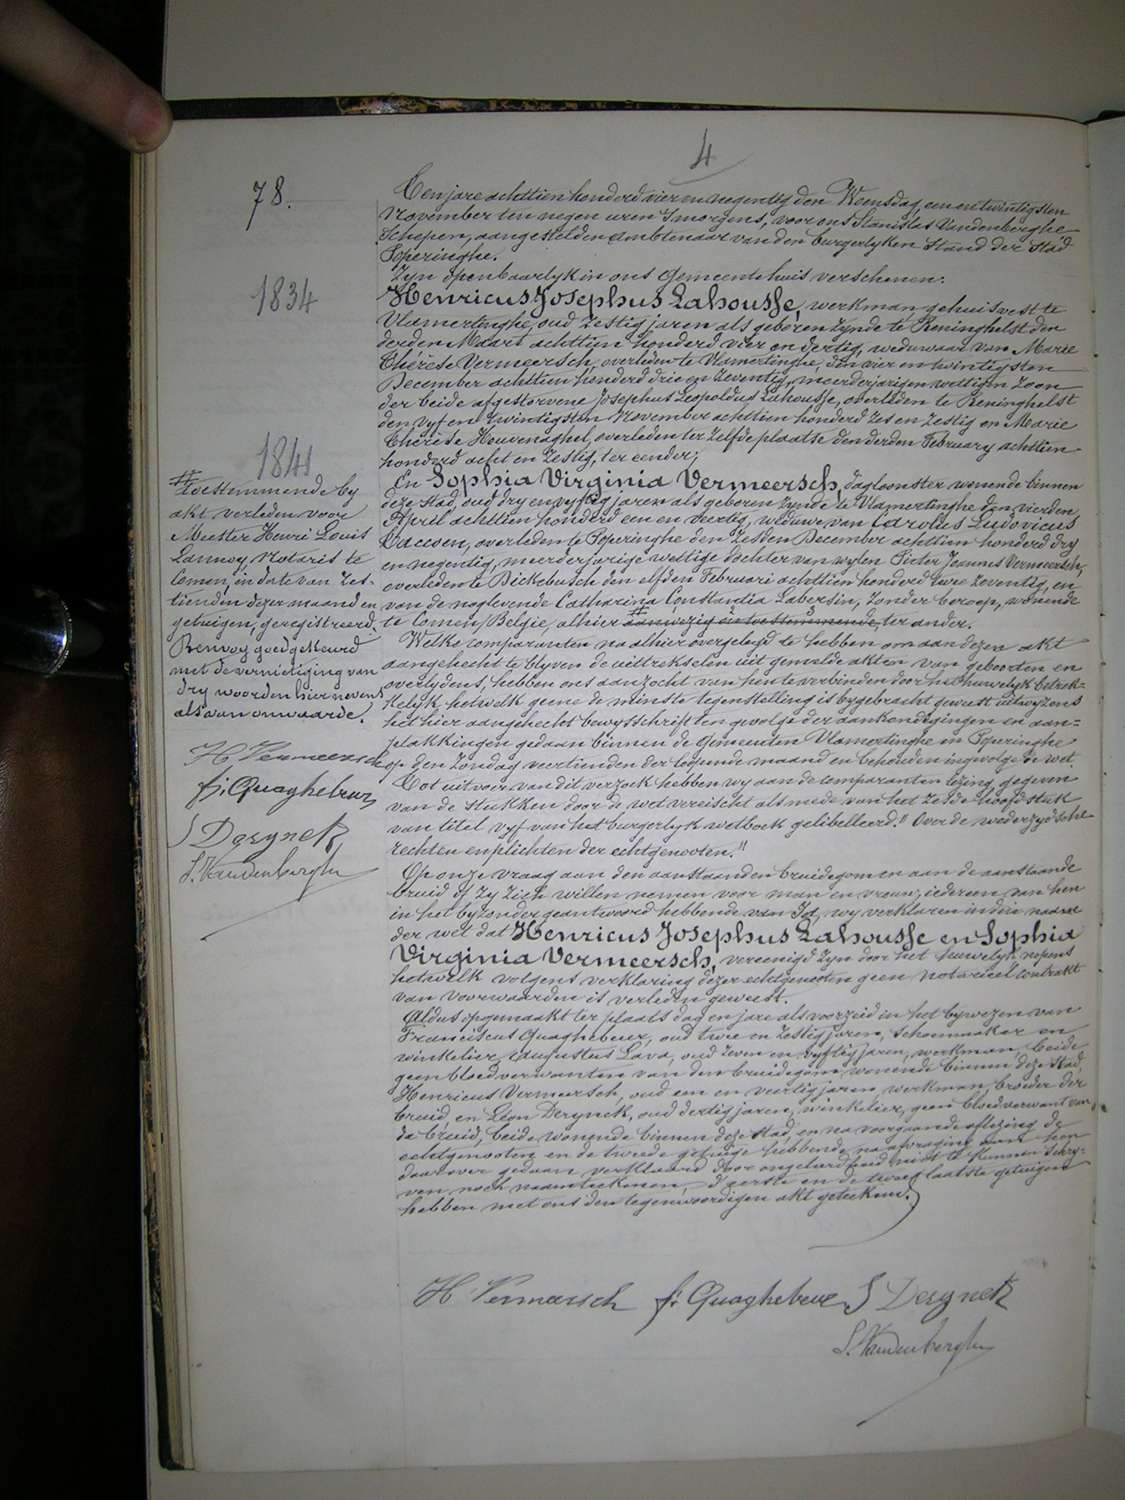 4
78.
1834
1841
Ten jare achttien honderd vier en negentig den Weensdag, een en twintigsten
November ten negen uren 's morgens, voor ons Stanislas Vandenberghe
Schepen, aangestelden ambtenaar van den burgerlyken Stand der Stad
Poperinghe.
Zyn openbaarlyk in ons Gemeentehuis verschenen:
Henricus Josephus Lahousse, werkman gehuisvest te
Vlamertinghe, oud zestig jaren als geboren zynde te Reninghelst den
derden Maart achttien honderd vier en dertig, weduwaar van Marie
Thérèse Vermeersch, overleden te Vlamertinghe, den vier en twintigsten
December achttien honderd drie en zeventig, meerderjarigen wettigen zoon
der beide afgestorvene Josephus Leopoldus Lahousse, overleden te Reninghelst
den vyf en twintigsten November achttien honderd zes en zestig en Marie
Thérèse Houvenaghel, overleden ter zelfde plaatse den derden February achttien
honderd acht en zestig, ter eender;
En Sophia Virginia Vermeersch, dagloonster wonende binnen
deze stad, oud dry en vyftig jaren als geboren zynde te Vlamertinghe den vierden
April achttien honderd een en veertig, weduwe van Carolus Ludovicus
overleden te Poperinghe den zesden December achttien honderd dry
en negentig, meerderjarige wettige dochter van wylen Pieter Joannes Vermeersch,
overleden te Dickebusch den elfden Februari achttien honderd twee zeventig, en
van de noglevende Catharina Constantia Labersin, zonder beroep, wonende
te Comen, België, alhier # aanwezig en toestemmende, ter ander.
Welke comparanten na alhier overgelegd te hebben om aan dezen akt
aangehecht te blyven de uittrekselen uit gemelde akten van geboorten en
overlydens, hebben ons aanzocht van hen te verbinden door het huwelyk betrek-
kelyk hetwelk geene de minste tegenstelling is bygebracht geweest uitwyzens
het hier aangehecht bewysschrift ten gevolge der aankondigingen en aan=
plakkingen gedaan binnen de Gemeenten Vlamertinghe en Poperinghe
op den Zondag veertienden der loopende maand en behouden ingevolge de wet.
Tot uitvoer van dit verzoek hebben wy aan de comparanten lezing gegeven
van de stukken door de wet vereischt alsmede van het zesde hoofdstuk
van titel vyf van het burgerlyk wetboek gelibelleerd. " Over de wederzydsche
rechten en plichten der echtgenooten."
Op onze vraag aan den aanstaanden bruidegom en aan de aanstaande
bruid of zy zich willen nemen voor man en vrouw, iedereen van hen
in het byzonder geantwoord hebbende van Ja, wy verklaren in den naam
der wet dat Henricus Josephus Lahousse en Sophia
Virginia Vermeersch, vereenigd zyn door het huwelyk nopens
hetwelk volgens verklaring dezer echtgenooten geen notarieel contrakt
van voorwaarden is verleden geweest.
Aldus opgemaakt ter plaats dag en jare als voorzeid in het bywezen van
Franciscus Quaghebeur, oud twee en zestig jaren, schoenmaker en
winkelier, Augustus Lava, oud zeven en vyftig jaren, werkman, beide
geen bloedverwanten van den bruidegom, wonende binnen deze stad,
Henricus Vermeersch, oud een en veertig jaren, werkman, broeder der
bruid, en Léon Derynck, oud dertig jaren, winkelier, geen bloedverwant van
de bruid, beide wonende binnen deze stad, en na voorgaande aflezing de
echtgenooten en de tweede getuige hebbende na afvraging aan hen
daarover gedaan verklaard door ongeleerdheid niet te kunnen schry-
ven noch naamteekenen, d'eerste en de twee laatste getuigen
hebben met ons den tegenwoordigen akt geteekend.
H Vermeersch fi Quaghebeur S Derynck
S. Vandenberghe
# Toestemmende by
akt verleden voor
Meester Henri Louis
Lannoy, Notaris te
Comen, in date van zes-
tienden dezer maand en
getuigen, geregistreerd.
Renvoy goedgekeurd
met de vernietiging van
dry woorden hier nevens
als van onwaarde.
H Vermeersch
fi Quaghebeur
S Derynck
S. Vandenberghe